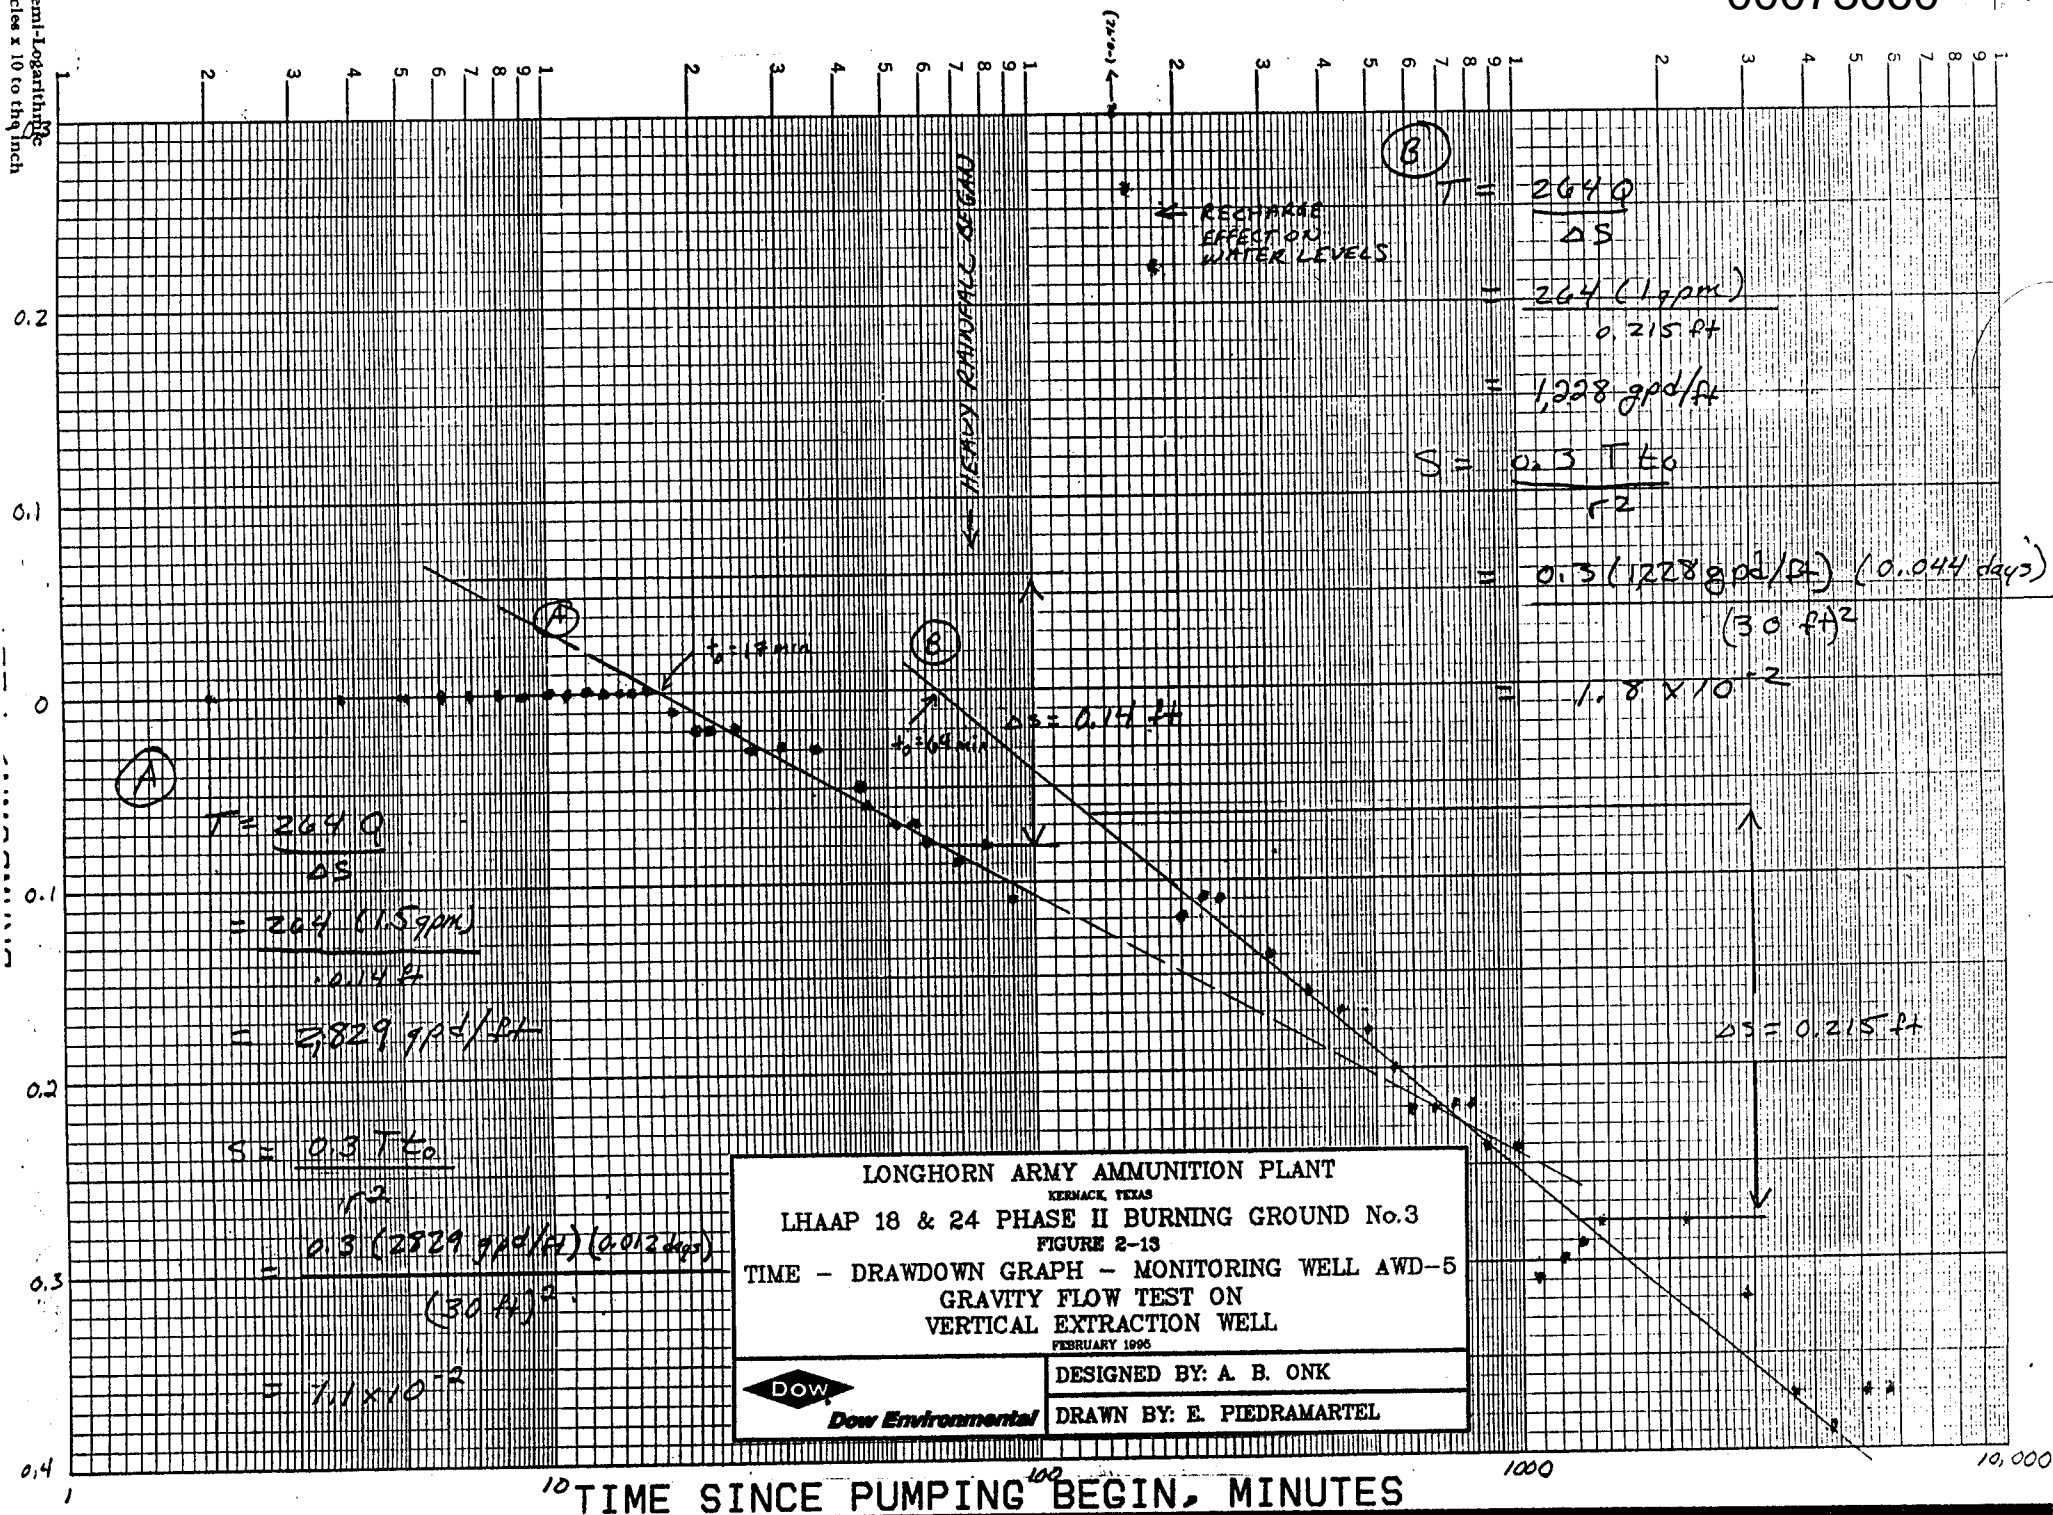 emi-Logarithmic
cles x 10 to the inch
(-0.42)
1 2 3 4 5 6 7 8 9 1 2 3 4 5 6 7 8 9 1 2 3 4 5 6 7 8 9 1 2 3 4 5 6 7 8 9 1
0.3
0.2
0.1
0
0.1
0.2
0.3
0.4
← HEAVY RAINFALL BEGAN
← RECHARGE
EFFECT ON
WATER LEVELS
B
T = 264 Q
ΔS
= 264 (1 gpm)
0.215 ft
= 1,228 gpd/ft
S = 0.3 T to
r2
= 0.3 (1228 gpd/ft) (0.044 days)
(30 ft)2
= 1.8 x 10-2
A
to=17 min
B
to=64 min
Δs = 0.14 ft
Δs = 0.215 ft
A
T = 264 Q
ΔS
= 264 (1.5gpm)
0.14 ft
= 2,829 gpd/ft
S = 0.3 T to
r2
= 0.3 (2829 gpd/ft) (0.012 days)
(30 ft)2
= 1.1 x 10-2
LONGHORN ARMY AMMUNITION PLANT
KERNACK, TEXAS
LHAAP 18 & 24 PHASE II BURNING GROUND No.3
FIGURE 2-13
TIME - DRAWDOWN GRAPH - MONITORING WELL AWD-5
GRAVITY FLOW TEST ON
VERTICAL EXTRACTION WELL
FEBRUARY 1996
DOW
Dow Environmental
DESIGNED BY: A. B. ONK
DRAWN BY: E. PIEDRAMARTEL
1 10 100 1000 10,000
TIME SINCE PUMPING BEGIN, MINUTES